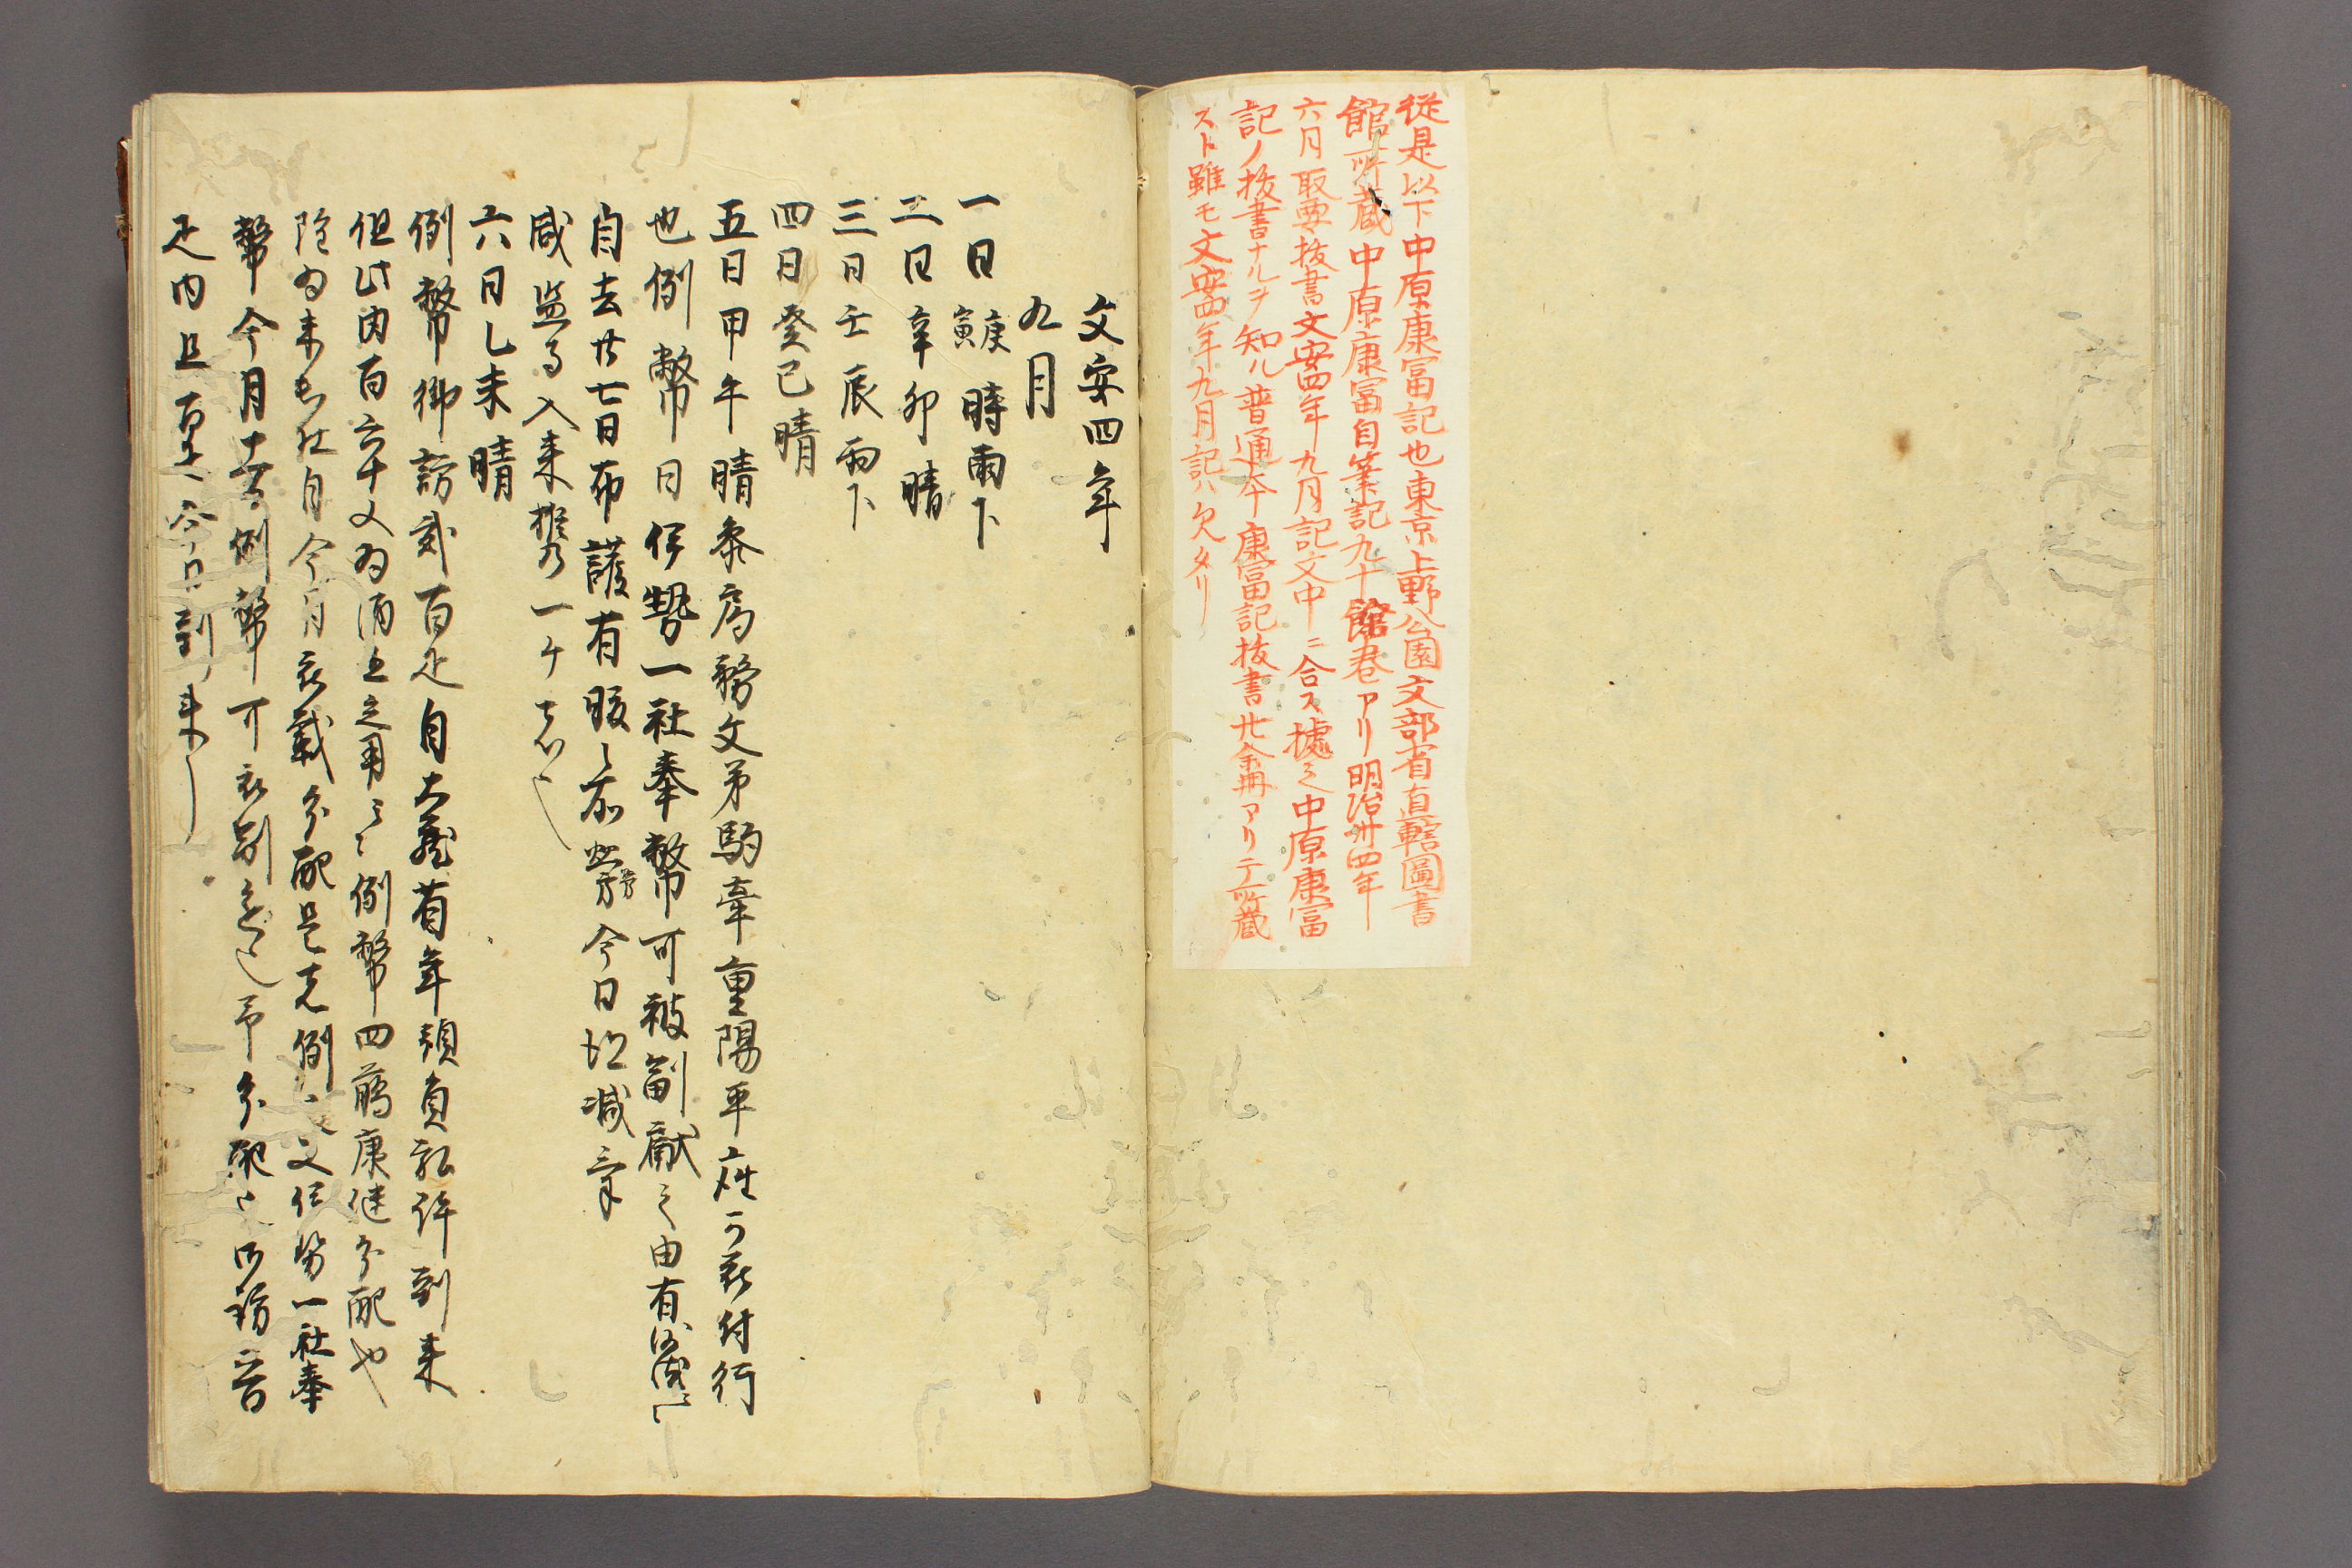 従是以下中原康富記也東京上野公園文部省直轄圖書
館所蔵中原康富自筆記九十餘巻アリ明治卅四年
六月取要抜書文安四年九月記文中ニ合ス據之中原康富
記ノ抜書ナルヲ知ル普通本康富記抜書廿余冊アリテ所蔵
スト雖モ文安四年九月記ハ欠タリ
文安四年
九月
一日庚寅時雨下
二日辛卯晴
三日壬辰雨下
四日癸巳晴
五日甲午晴参局務文第駒牽重陽平座可被付行
也例幣日伊勢一社奉幣可被副献之由有沙汰
自去廿七日荷護有腹之所労今日増減
威監寺入来携一ケ
六日乙未晴
例幣御訪貳百疋自大蔵省年預員職許到来
但此内百六十文為酒直之用云々例幣四萬康継分配也
除為未出仕自今月被載分配是先例又伊勢一社奉
幣今月十一日例幣可被副進分配御訪二百
疋内且百疋今日到来